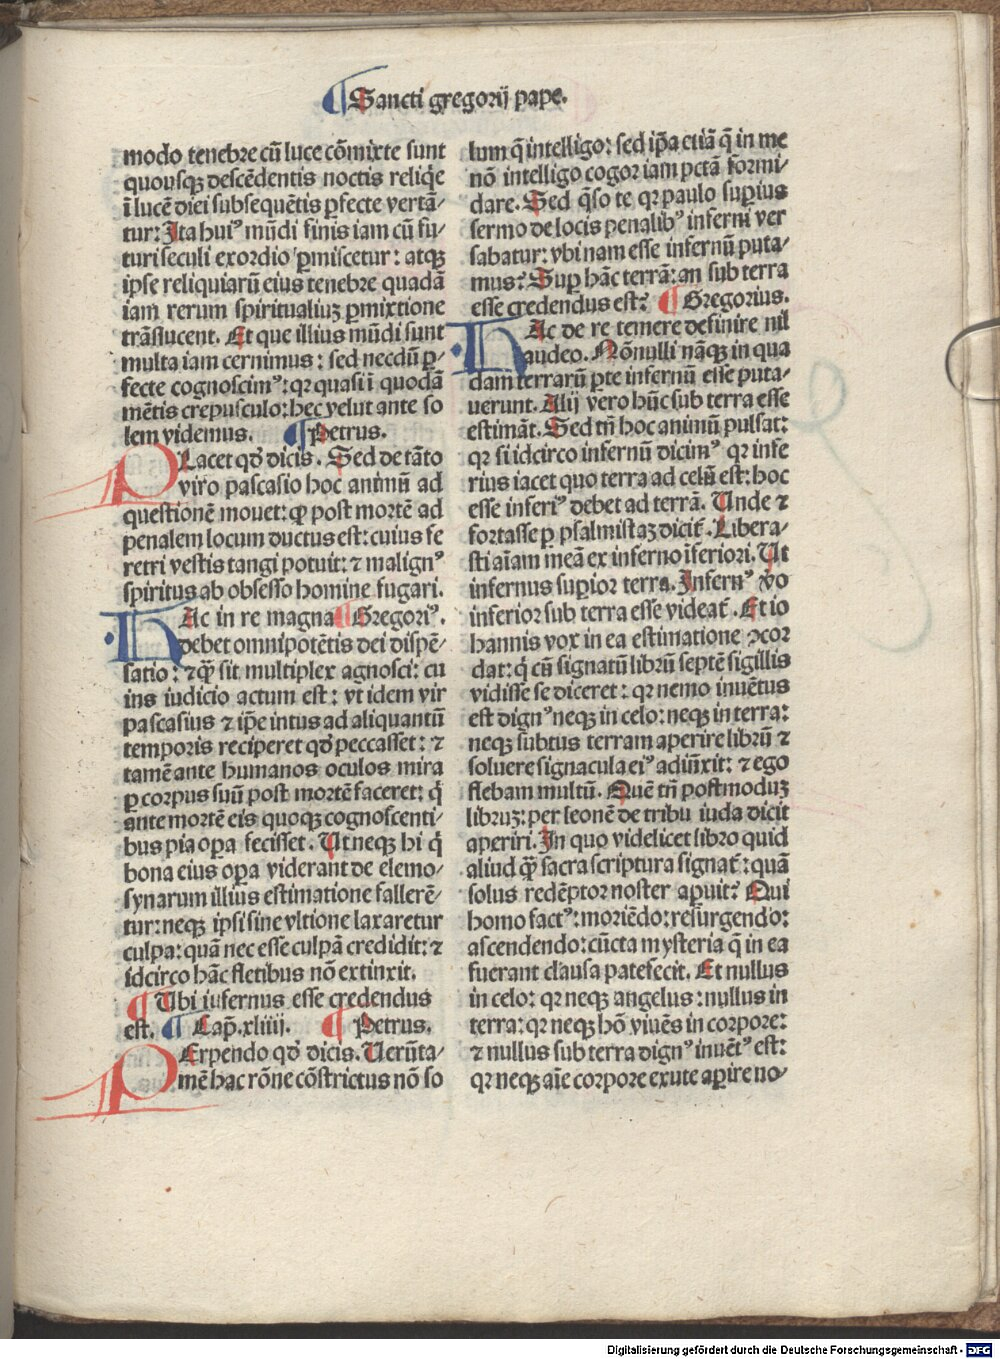 ¶Sancti gregorij pape.
modo tenebre cū luce cōmixte sunt
quousqꝫ descēdentis noctis reliq̄e
ī lucē diei subsequētis ꝑfecte vertā/
tur: Ita huiꝰ mūdi finis iam cū fu/
turi seculi exordio ꝑmiscetur: atqꝫ
ipse reliquiarū eius tenebre quadā
iam rerum spiritualiuꝫ ꝑmixtione
trāslucent. Et que illius mūdi sunt
multa iam cernimus: sed necdū ꝑ/
fecte cognoscimꝰ: qꝛ quasi ī quodā
mētis crepusculo: hec velut ante so
lem videmus. ¶Petrus.
PLacet qd̄ dicis. Sed de tāto
viro pascasio hoc animū ad
questionē mouet: ꝙ post mortē ad
penalem locum ductus est: cuius fe
retri vestis tangi potuit: ⁊ malignꝰ
spiritus ab obsesso homine fugari.
HAc in re magna ¶Gregoriꝰ.
debet omnipotētis dei dispē/
satio: ⁊ qꝙ̄ sit multiplex agnosci: cu
ius iudicio actum est: vt idem vir
pascasius ⁊ ip̄e intus ad aliquantū
temporis reciperet qd̄ peccasset: ⁊
tamē ante humanos oculos mira
ꝑ corpus suū post mortē faceret: q̇
ante mortē eis quoqꝫ cognoscenti/
bus pia oꝑa fecisset. Ut neqꝫ hi q̇
bona eius oꝑa viderant de elemo/
synarum illius estimatione fallerē/
tur: neqꝫ ipsi sine vltione laxaretur
culpa: quā nec esse culpā credidit: ⁊
idcirco hāc fletibus nō extinxit.
¶Ubi infernus esse credendus
est. ¶Cap̄.xliiij. ¶Petrus.
PErpendo qd̄ dicis. Verūta/
mē hac rōne cōstrictus nō so
lum q̄ intelligo: sed ip̄a etiā q̄ in me
nō intelligo cogor iam pctā formi/
dare. Sed q̄so te qꝛ paulo suꝑius
sermo de locis penalibꝰ inferni ver
sabatur: vbi nam esse infernū puta/
mus: Suꝑ hāc terrā: an sub terra
esse credendus est: ¶Gregorius.
HAc de re temere definire nil
audeo. Nōnulli nāqꝫ in qua
dam terrarū ꝑte infernū esse puta/
uerunt. Alij vero hūc sub terra esse
estimāt. Sed tn̄ hoc animū pulsat:
qꝛ si idcirco infernū dicimꝰ qꝛ infe
rius iacet quo terra ad celū est: hoc
esse inferiꝰ debet ad terrā. Unde ⁊
fortasse ꝑ psalmistaꝫ dicit̄. Libera/
sti aīam meā ex inferno īferiori. Ut
infernus suꝑior terra. Infernꝰ v̄o
inferior sub terra esse videat̄. Et io
hannis vox in ea estimatione ꝯcor
dat: q̇ cū signatū librū septē sigillis
vidisse se diceret: qꝛ nemo inuētus
est dignꝰ neqꝫ in celo: neqꝫ in terra:
neqꝫ subtus terram aperire librū ⁊
soluere signacula eiꝰ adiūxit: ⁊ ego
flebam multū. Quē tn̄ postmoduꝫ
libruꝫ: per leonē de tribu iuda dicit
aperiri. In quo videlicet libro quid
aliud qꝙ̄ sacra scriptura signat̄: quā
solus redēptor noster aꝑuit: Qui
homo factꝰ: moriēdo: resurgendo:
ascendendo: cūcta mysteria q̄ in ea
fuerant clausa patefecit. Et nullus
in celo: qꝛ neqꝫ angelus: nullus in
terra: qꝛ neqꝫ hō viuēs in corpore:
⁊ nullus sub terra dignꝰ inuētꝰ est:
qꝛ neqꝫ aīe corpore exute aꝑire no/
Digitalisierung gefördert durch die Deutsche Forschungsgemeinschaft - DFG